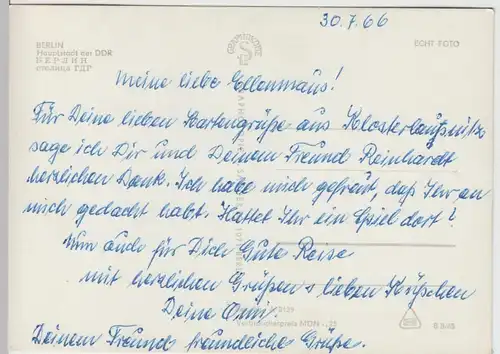 30.7.66
BERLIN
Hauptstadt der DDR
БЕРЛИН
столица ГДР
ECHT FOTO
meine liebe Ellenmaus!
Für Deine lieben Kartengrüße aus Klosterlausnitz
sage ich Dir und Deinem Freund Reinhardt
herzlichen Dank. Ich habe mich gefreut, daß Ihr an
mich gedacht habt. Hattet Ihr ein Spiel dort?
Nun auch für Dich Gute Reise
mit herzlichen Grüßen u lieben Küßchen
Deine Omi.
Verbraucherpreis MDN
Deinem Freund freundliche Grüße.